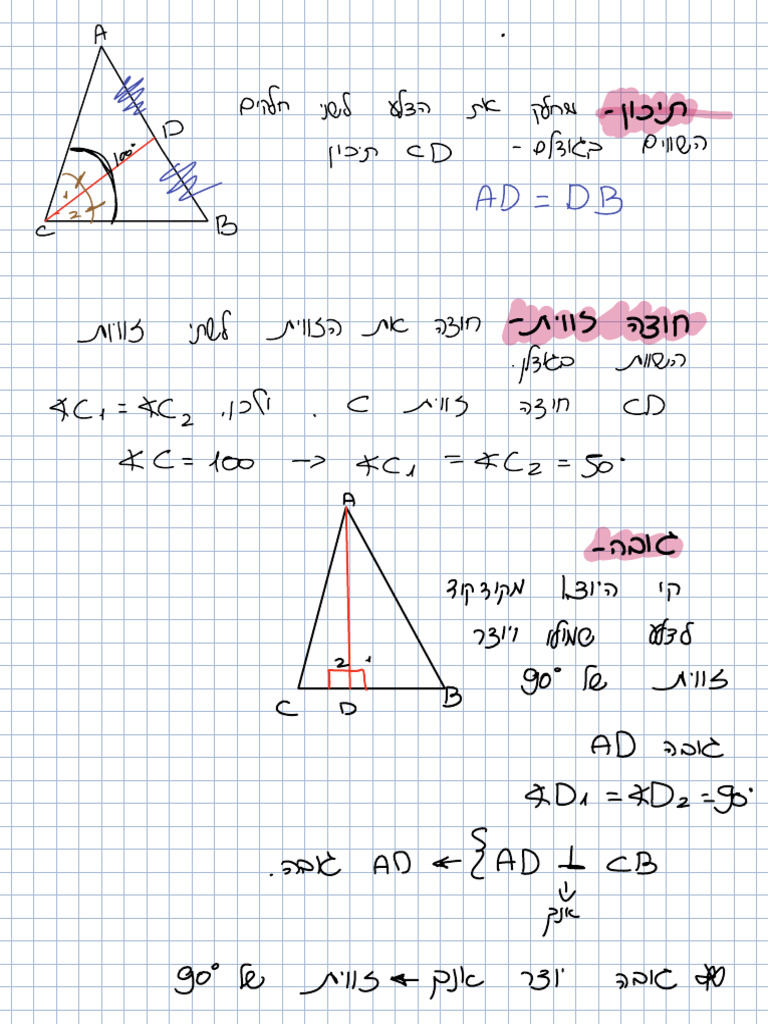 A
D
100°
1
2
C
B
תיכון- מחלק את הצלע לשני חלקים
השווים בגודלם - CD תיכון
AD = DB
חוצה זווית- חוצה את הזווית לשתי זוויות
השוות בגודלן.
CD חוצה זווית C . ולכן, ∢C1 = ∢C2
∢C = 100 → ∢C1 = ∢C2 = 50°
A
2 1
C D B
גובה-
קו היוצא מקודקוד
לצלע שמולו ויוצר
זווית של 90°
AD גובה
∢D1 = ∢D2 = 90°
AD ⊥ CB } ← AD גובה.
⇓
אנך
* גובה יוצר אנך ← זווית של 90°